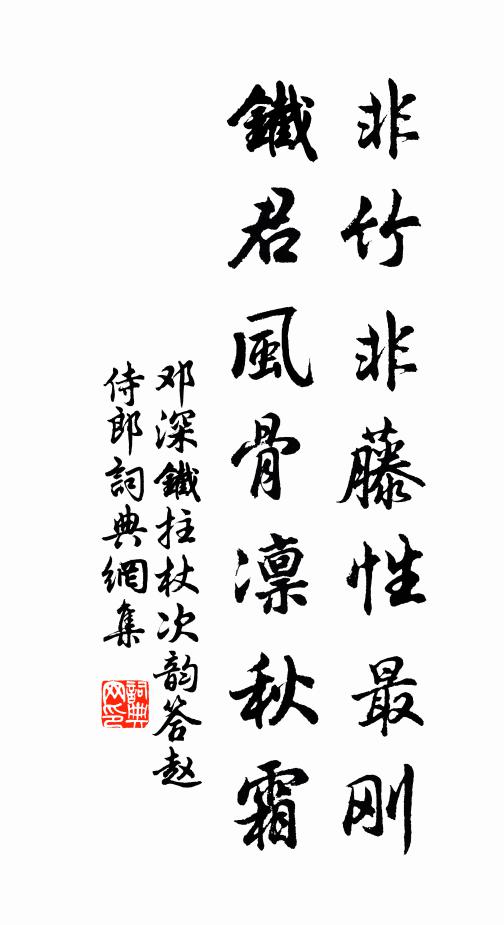 非竹非藤性最刚
鐵君風骨凛秋霜
邓深鐵拄杖次韵答赵
侍郎詞典網集
詞典网印